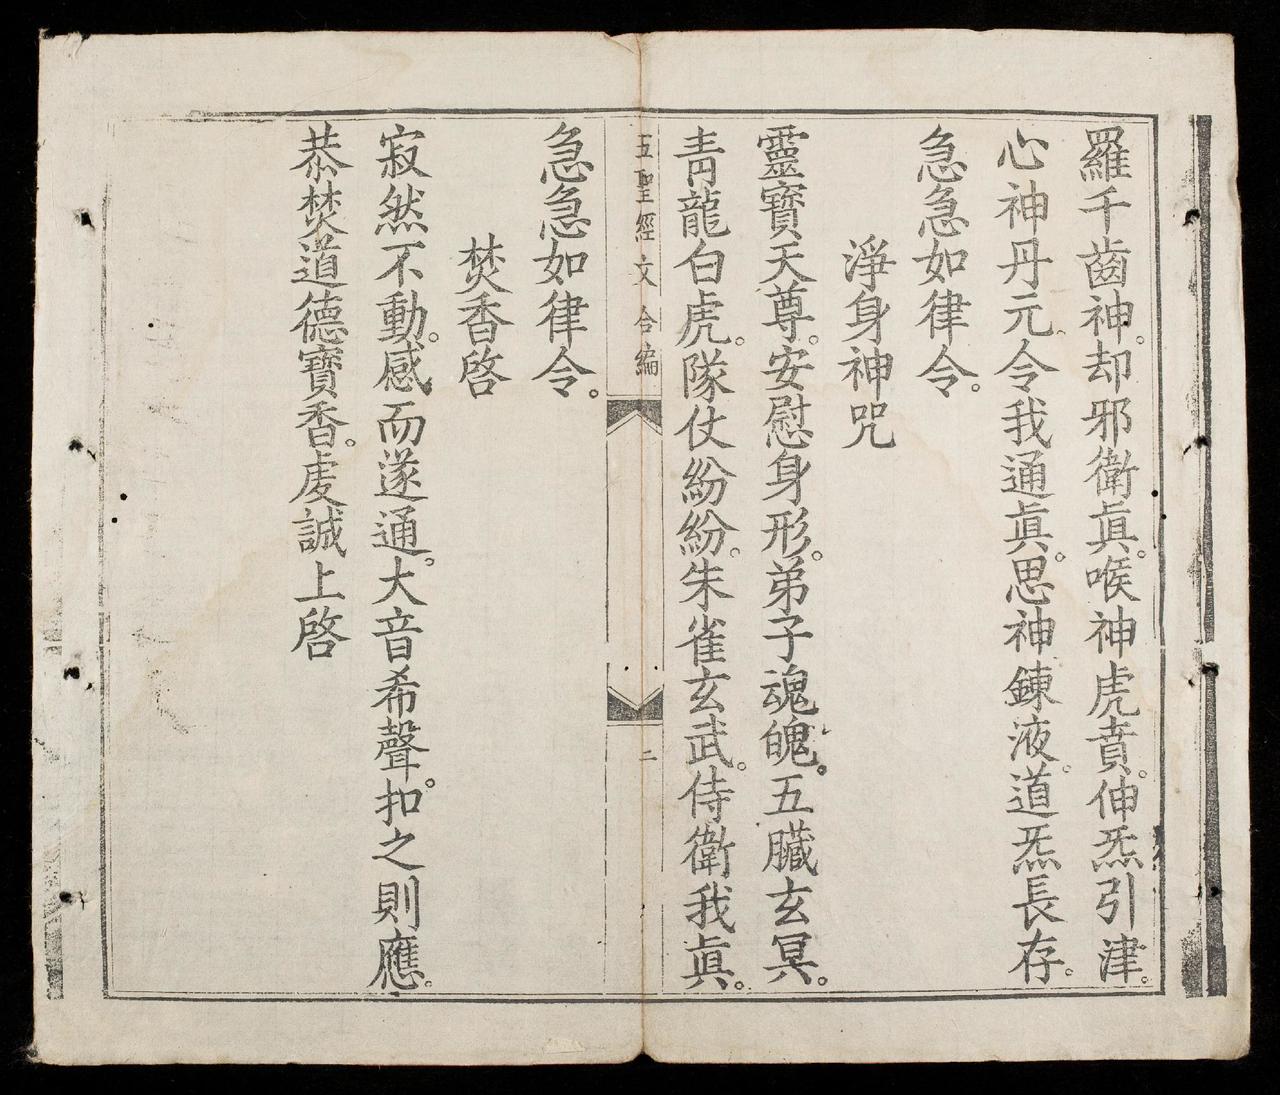 羅千齒神。却邪衛眞。喉神虎賁。伸炁引津。
心神丹元。令我通眞。思神鍊液。道炁長存。
急急如律令。
淨身神咒
靈寶天尊。安慰身形。弟子魂魄。五臟玄冥。
靑龍白虎。隊仗紛紛。朱雀玄武。侍衛我眞。
五聖經文合編
二
急急如律令。
焚香啓
寂然不動。感而遂通。大音希聲。扣之則應。
恭焚道德寶香。虔誠上啓